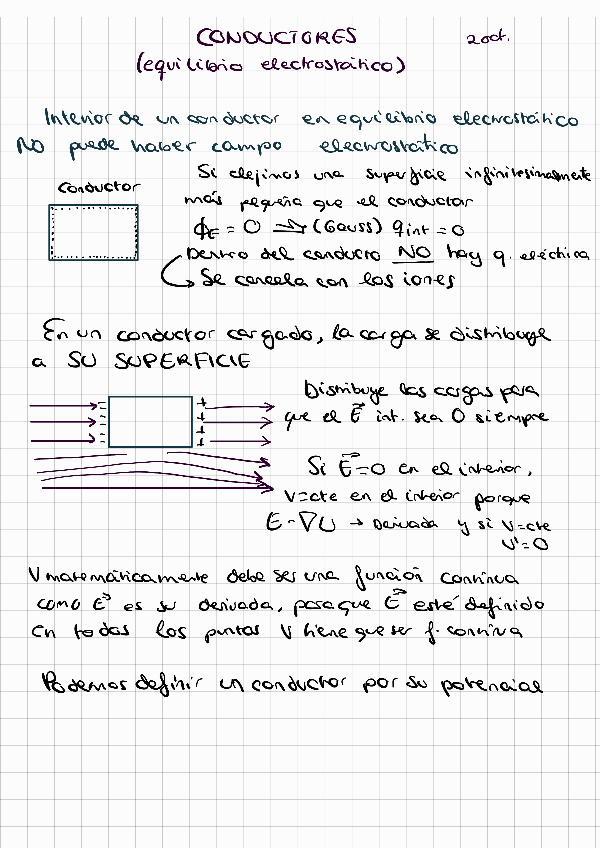 CONDUCTORES
2 oct.
(equilibrio electrostático)
Interior de un conductor en equilibrio electrostático
NO puede haber campo electrostático
Si elejimos una superficie infinitesimalmente
conductor
más pequeña que el conductor
ϕE = 0 ⟹ (Gauss) qint = 0
Dentro del conducto NO hay q. eléctrica
↳ Se cancela con los iones
En un conductor cargado, la carga se distribuye
a SU SUPERFICIE
Distribuye las cargas para
que el E⃗ int. sea 0 siempre
- +
- +
- +
- +
Si E⃗=0 en el interior,
V=cte en el interior porque
E - ∇U → Derivada y si V=cte
V'=0
V matemáticamente debe ser una función continua
como E⃗ es su derivada, para que E⃗ esté definido
en todos los puntos V tiene que ser f. continua
Podemos definir un conductor por su potencial